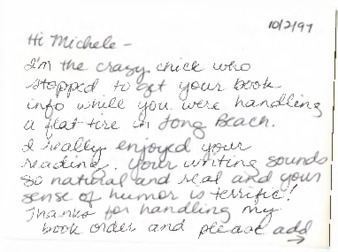 10/2/97
Hi Michele -
I'm the crazy chick who
stopped to get your book
info while you were handling
a flat tire in Long Beach.
I really enjoyed your
reading. Your writing sounds
so natural and real and your
sense of humor is terrific!
Thanks for handling my
book order and please add →